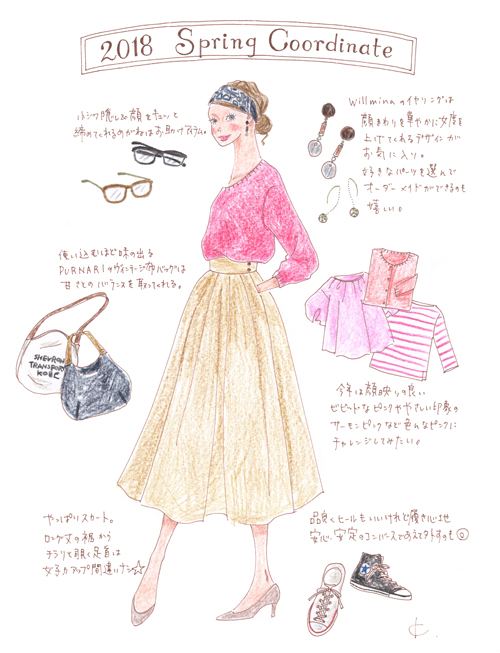 2018 Spring Coordinate
シワ隠し&顔をキュッと
締めてくれるのがねはお助けアイテム。
Willminaのイヤリングは
顔まわりを華やかに女度を
上げてくれるデザインが
お気に入り。
好きなパーツを選んで
オーダーメイドができるのも
嬉しい。
使い込むほど味の出る
PURNARIのヴィンテージ布バッグは
甘さとのバランスを取ってくれる。
SHEVRON
TRANSFORT
KOBE
今年は顔映りの良い
ビビードなピンクややさしい印象の
サーモンピンクなど色んなピンクに
チャレンジしてみたい。
やっぱりスカート。
ロング丈の裾から
チラリと覗く足首は
女子力アップ間違いナシ☆
品良くヒールもいいけれど履き心地
安心、安定のコンバースであえてハズすのも◎